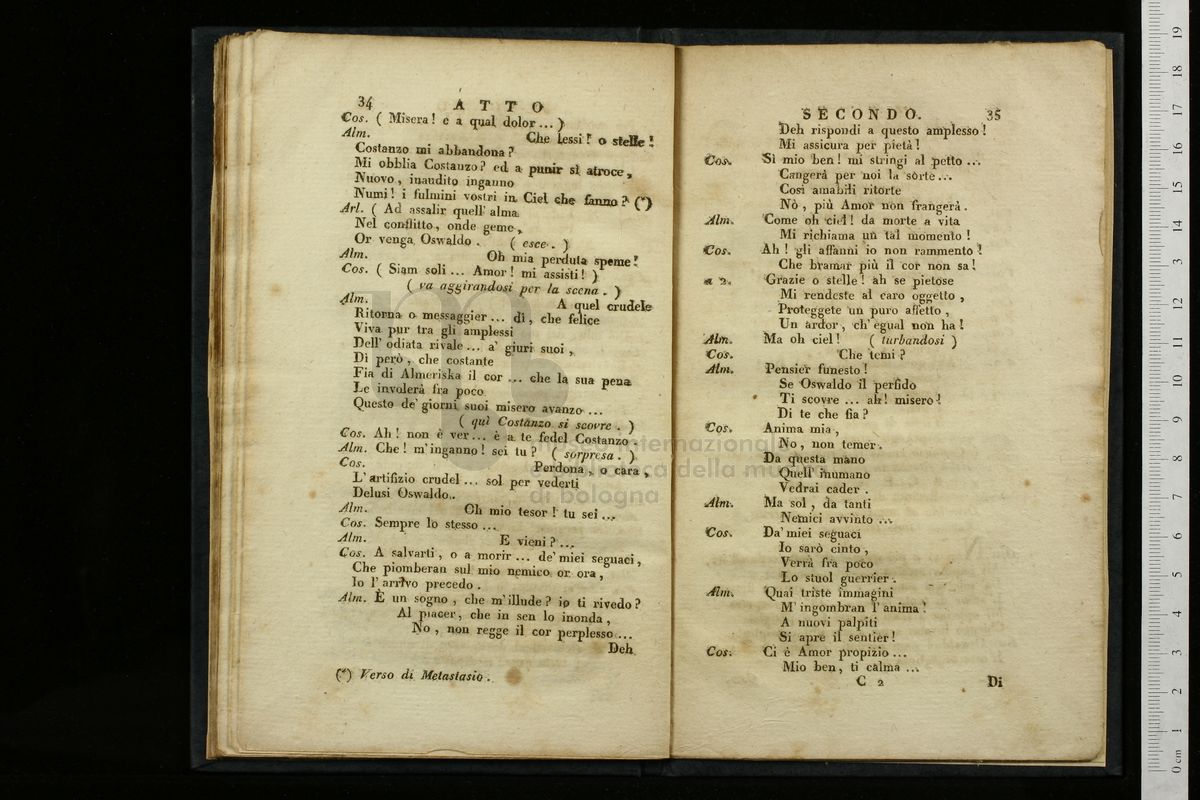 34 ATTO
Cos. ( Misera! e a qual dolor ... )
Alm. Che lessi! o stelle!
Costanzo mi abbandona?
Mi obblia Costanzo? ed a punir sì atroce,
Nuovo, inaudito inganno
Numi! i fulmini vostri in Ciel che fanno? (*)
Arl. ( Ad assalir quell' alma
Nel conflitto, onde geme,
Or venga Oswaldo. ( esce. )
Alm. Oh mia perduta speme!
Cos. ( Siam soli ... Amor! mi assisti! )
( va aggirandosi per la scena. )
Alm. A quel crudele
Ritorna o messaggier ... dì, che felice
Viva pur tra gli amplessi
Dell' odiata rivale ... a' giuri suoi,
Dì però, che costante
Fia di Almeriska il cor ... che la sua pena
Le involerà fra poco
Questo de' giorni suoi misero avanzo ...
( quì Costanzo si scovre. )
Cos. Ah! non è ver ... è a te fedel Costanzo
Alm. Che! m'inganno! sei tu? ( sorpresa. )
Cos. Perdona, o cara,
L' artifizio crudel ... sol per vederti
Delusi Oswaldo.
Alm. Oh mio tesor! tu sei ...
Cos. Sempre lo stesso ...
Alm. E vieni? ...
Cos. A salvarti, o a morir ... de' miei seguaci,
Che piomberan sul mio nemico or ora,
Io l' arrivo precedo.
Alm. È un sogno, che m'illude? io ti rivedo?
Al piacer, che in sen lo inonda,
No, non regge il cor perplesso ...
Deh
(*) Verso di Metastasio.
SECONDO. 35
Deh rispondi a questo amplesso!
Mi assicura per pietà!
Cos. Sì mio ben! mi stringi al petto ...
Cangerà per noi la sorte ...
Così amabili ritorte
Nò, più Amor non frangerà.
Alm. Come oh ciel! da morte a vita
Mi richiama un tal momento!
Cos. Ah! gli affanni io non rammento!
Che bramar più il cor non sa!
a 2. Grazie o stelle! ah se pietose
Mi rendeste al caro oggetto,
Proteggete un puro affetto,
Un ardor, ch' egual non ha!
Alm. Ma oh ciel! ( turbandosi )
Cos. Che temi?
Alm. Pensier funesto!
Se Oswaldo il perfido
Ti scovre ... ah! misero!
Di te che fia?
Cos. Anima mia,
No, non temer.
Da questa mano
Quell' inumano
Vedrai cader.
Alm. Ma sol, da tanti
Nemici avvinto ...
Cos. Da' miei seguaci
Io sarò cinto,
Verrà fra poco
Lo stuol guerrier.
Alm. Quai triste immagini
M' ingombran l' anima!
A nuovi palpiti
Si apre il sentier!
Cos. Ci è Amor propizio ...
Mio ben, ti calma ...
C 2 Di
museo internazionale
e biblioteca della musica
di bologna
0 cm 1 2 3 4 5 6 7 8 9 10 11 12 13 14 15 16 17 18 19